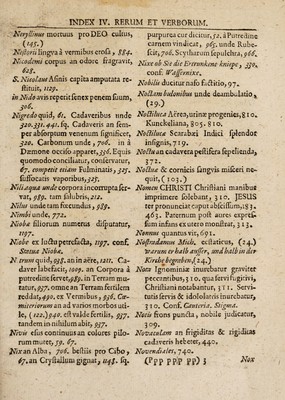 INDEX IV. RERUM ET VERBORUM.
Neryllinus mortuus pro DEO cultus,
(245.)
Nestoris lingva à vermibus erosa, 884.
Nicodemi corpus an odore fragravit,
628.
S. Nicolaus Asinis capita amputata re-
stituit, 1129.
in Nido avis reperit senex penem suum,
306.
Nigredo quid, 61. Cadaveribus unde
320. 331. 441. sq. Cadaveris an sem-
per absorptum venenum significet,
320. Carbonum unde, 706. in à
Dæmone occiso apparet, 336. Equis
quomodo conciliatur, conservatur,
67. competit etiam Fulminatis, 325.
suffocatis vaporibus, 325.
Nili aqua unde corpora incorrupta ser-
vat, 989. tam salubris, 212.
Nilus unde tam fœcundus, 989.
Nimbi unde, 772.
Niobæ filiorum numerus disputatur,
1197.
Niobe ex luctu petrefacta, 1197. conf.
Statua Niobæ.
Nitrum quid, 935. an in aëre, 1211. Ca-
daver labefacit, 1009. an Corpora à
putredine servet, 989. in Terram mu-
tatur, 937. omne an Terram fertilem
reddat, 490. ex Vermibus, 936. Cæ-
miteriorum an ad varios morbos uti-
le, (122.) 940. est valde fertilis, 937.
tandem in nihilum abit, 937.
Nivis esus continuus an colores pilo-
rum mutet, 59. 67.
Nix an Alba, 706. bestiis pro Cibo,
67. an Crystallum gignat, 1145. sq.
purpurea cur dicitur, 52. à Putredine
carnem vindicat, 963. unde Rube-
scit, 706. Scytharum sepulchra, 966.
Nixe ob Sie die Ertrunkene kniepe, 330.
conf. Wassernixe.
Nobilis ducitur naso factitio, 97.
Noctam bulonibus unde deambulatio,
(29.)
Noctiluca Aërea, urinæ progenies, 810.
Kunckeliana, 805. 810.
Noctiluca Scarabæi Indici splendor
insignis, 719.
Noctua an cadavera pestifera sepelienda,
372.
Noctuæ & cornicis sangvis misceri ne-
quit, (103.)
Nomen CHRISTI Christiani manibus
imprimere solebant, 310. JESUS
ter pronunciat caput abscissum, 183.
463. Paternum post aures expres-
sum infans ex utero monstrat, 313.
Nomus quantus vis, 691.
Nostradamus Mich. ecstaticus, (24.)
warum er halb ausser, und halb in der
Kirche begraben, (24.)
Nota Ignominiæ inurebatur graviter
peccantibus, 310. qua servi fugitivi,
Christiani notabantur, 311. Servi-
tutis servis & idololatris inurebatur,
310. Conf. Cauteria. Stigma.
Notis frons puncta, nobile judicatur,
309.
Novaculam an frigiditas & rigiditas
cadaveris hebetet, 440.
Novendiales, 740.
(Ppp ppp pp) 3
Nox